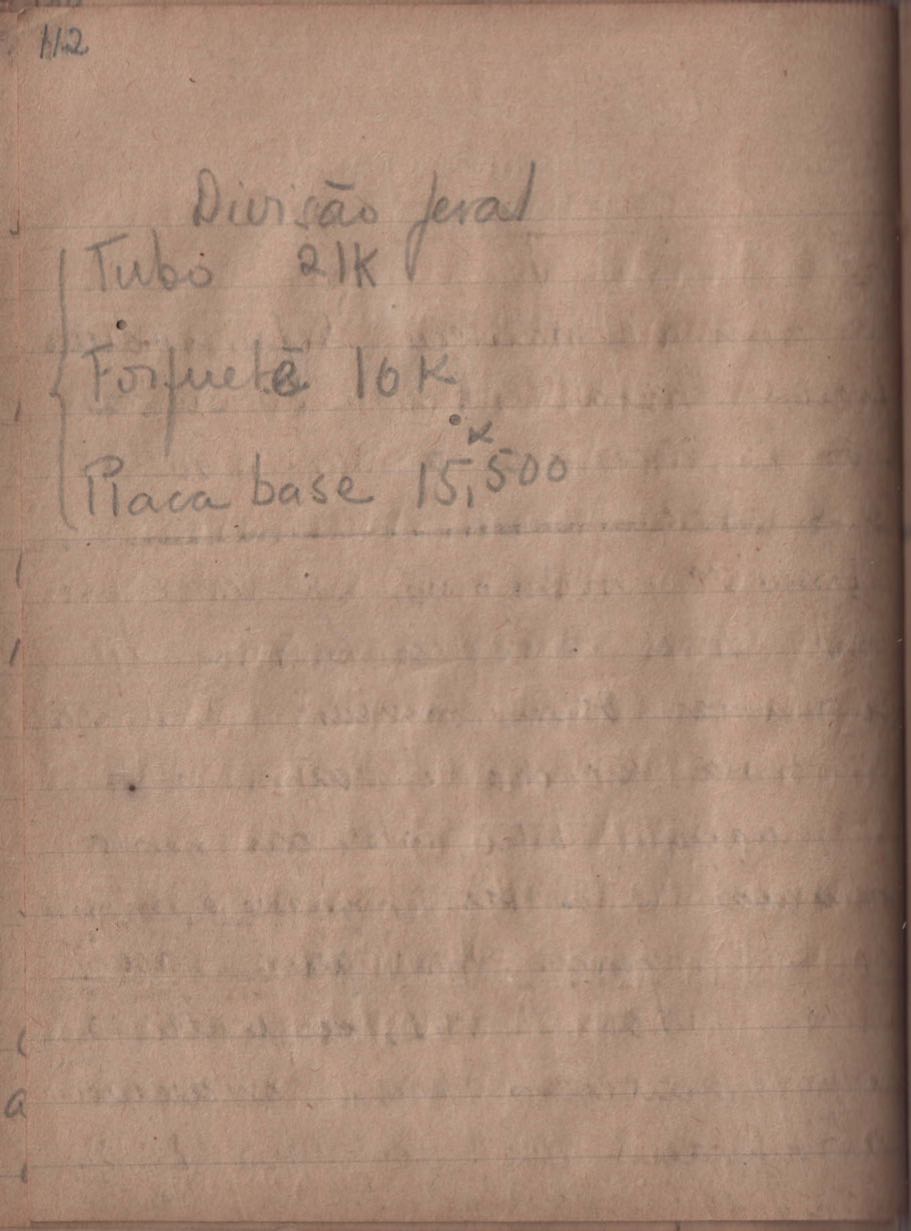 112
Divisão geral
Tubo 21K
Forquetê 16K
Placa base 15,500 K